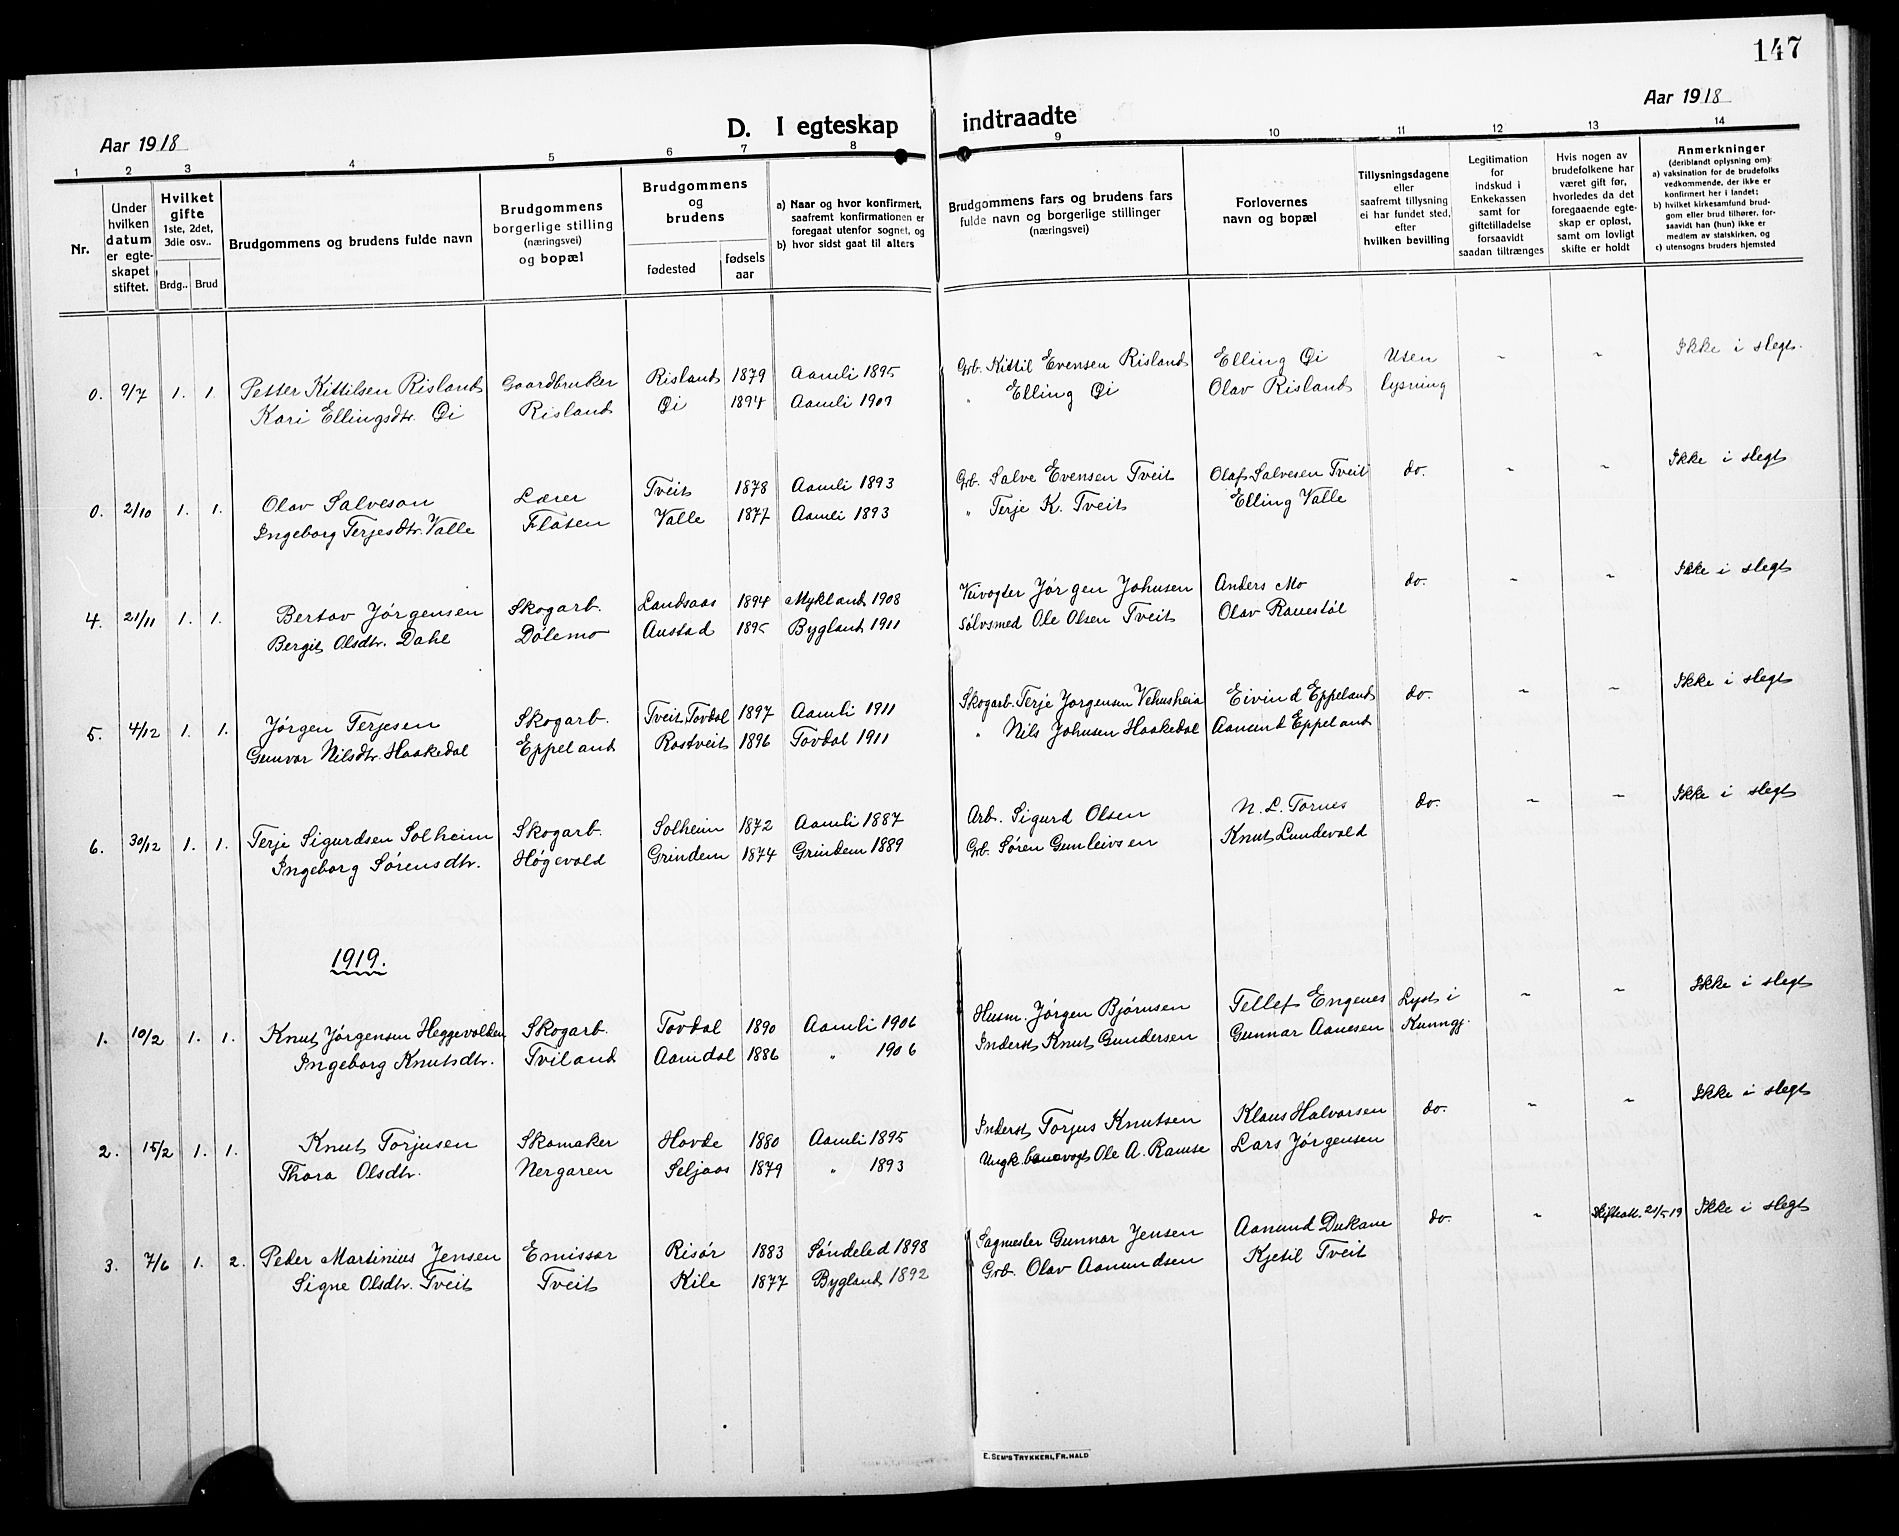 147
Aar 1918
D. I egteskap indtraadte
Aar 1918
1 2 3 4 5 6 7 8 9 10 11 12 13 14
Nr.
Under hvilken datum er egteskapet stiftet.
Hvilket gifte 1ste, 2det, 3die osv..
Brdg.. Brud
Brudgommens og brudens fulde navn
Brudgommens borgerlige stilling (næringsvei) og bopæl
Brudgommens og brudens
fødested
fødsels aar
a) Naar og hvor konfirmert, saafremt konfirmationen er foregaat utenfor sognet, og
b) hvor sidst gaat til alters
Brudgommens fars og brudens fars fulde navn og borgerlige stillinger (næringsvei)
Forlovernes navn og bopæl
Tillysningsdagene eller saafremt tillysning ei har fundet sted, efter hvilken bevilling
Legitimation for indskud i Enkekassen samt for giftetilladelse forsaavidt saadan tiltrænges
Hvis nogen av brudefolkene har været gift før, hvorledes da det foregaaende egteskap er opløst, samt om lovligt skifte er holdt
Anmerkninger
(deriblandt oplysning om):
a) vaksination for de brudefolks vedkommende, der ikke er konfirmert her i landet;
b) hvilket kirkesamfund brudgom eller brud tilhører, forsaavidt han (hun) ikke er medlem av statskirken, og
c) utensogns bruders hjemsted
0. 9/7 1. 1. Petter Kittilsen Risland Gaardbruker Risland 1879 Aamli 1895 Grb. Kittil Evensen Risland Elling Øi Uten - - Ikke i slegt.
Kari Ellingsdtr. Øi Risland Øi 1894 Aamli 1909 " Elling Øi Olav Risland lysning
0. 2/10 1. 1. Olav Salveson Lærer Tveit 1878 Aamli 1893 Grb. Salve Evensen Tveit Olaf Salvesen Tveit do. - - Ikke i slegt
Ingeborg Terjesdtr. Valle Flaten Valle 1877 Aamli 1893 " Terje K. Tveit Elling Valle
4. 21/11 1. 1. Bertav Jørgensen Skogarb. Landsaas 1894 Mykland 1908 Jørgen Johnsen Anders Mo do. - - Ikke i slegt
Bergit Olsdtr. Dahl Dølemo Austad 1895 Bygland 1911 Sølvsmed Ole Olsen Tveit Olav Ranestøl
5. 4/12 1. 1. Jørgen Terjesen Skogarb. Tveit, Tovdal 1897 Aamli 1911 Skogarb. Terje Jørgensen Vehusheia Eivind Eppeland do. - - Ikke i slegt
Gunvor Nilsdtr. Haakedal Eppeland Rostveit 1896 Tovdal 1911 " Nils Johnsen Haakedal Aanund Eppeland
6. 30/12 1. 1. Terje Sigurdsen Solheim Skogarb. Solheim 1872 Aamli 1887 Arb. Sigurd Olsen N. L. Tornes do. - - Ikke i slegt
Ingeborg Sørensdtr. Høgevold Grindem 1874 Grindem 1889 Grb. Søren Gunleivsen Knut Lundevold
1919.
1. 10/2 1. 1. Knut Jørgensen Heggevolden Skogarb. Tovdal 1890 Aamli 1906 Husm. Jørgen Bjørnsen Tellef Engenes Lyst i - - Ikke i slegt
Ingeborg Knutsdtr. Tviland Aamdal 1886 " 1906 Inderst Knut Gundersen Gunnar Aanesen Kunngj.
2. 15/2 1. 1. Knut Torjusen Skomaker Hovde 1880 Aamli 1895 Inderst Torjus Knutsen Klaus Halvorsen do. - - Ikke i slegt
Thora Olsdtr. Nergaren Seljaas 1879 " 1893 Ungk. banevogt Ole A. Ramse Lars Jørgensen
3. 7/6 1. 2. Peder Martinius Jensen Emissær Risør 1883 Søndeled 1898 Sagmester Gunnar Jensen Aanund Dukane do. - Skifteatt. 21/5 19 Ikke i slegt
Signe Olsdtr. Tveit Tveit Kile 1877 Bygland 1892 Grb. Olav Aanundsen Kjetil Tveit
E. SEM'S TRYKKERI, FR.HALD